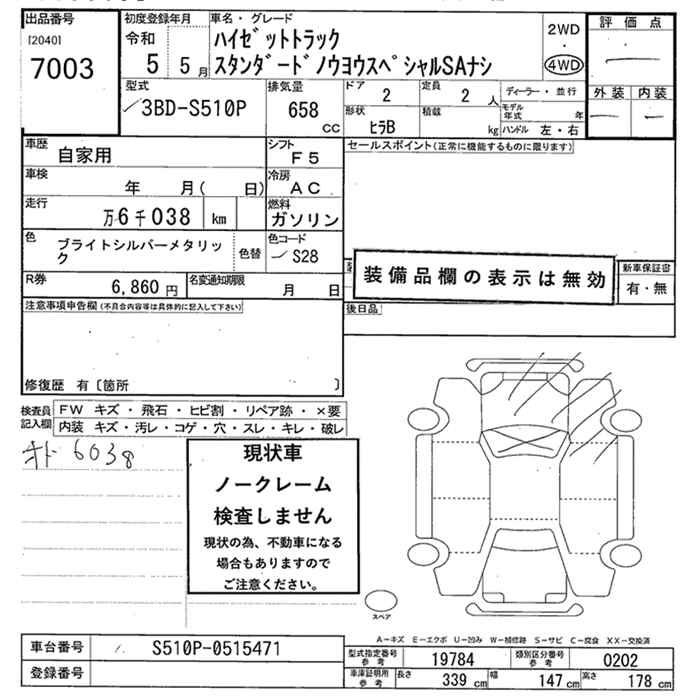 出品番号
[2040]
7003
初度登録年月
令和
5 5月
車名・グレード
ハイゼットトラック
スタンダードノウヨウスペシャルSAナシ
2WD
・
4WD
評価点
―
外装 内装
― ―
型式
3BD-S510P
排気量
658
CC
ドア
2
定員
2 人
形状
ヒラB
積載
kg
ディーラー・並行
モデル年式 年
ハンドル 左・右
車歴
自家用
シフト
F5
車検
年 月( 日)
冷房
AC
走行
万6千038 km
燃料
ガソリン
色
ブライトシルバーメタリッ
ク
色替
色コード
S28
R券
6,860 円
名変通知期限
月 日
セールスポイント(正常に機能するものに限ります)
装備品欄の表示は無効
新車保証書
有・無
後日品
注意事項申告欄(不具合内容等は具体的に記入して下さい)
修復歴 有〔箇所 〕
検査員
記入欄
FW キズ・飛石・ヒビ割・リペア跡・×要
内装 キズ・汚レ・コゲ・穴・スレ・キレ・破レ
キド 6038
現状車
ノークレーム
検査しません
現状の為、不動車になる
場合もありますので
ご注意ください。
スペア
A-キズ E-エクボ U-凹み W-補修跡 S-サビ C-腐食 XX-交換済
車台番号
S510P-0515471
登録番号
型式指定番号
参考
19784
類別区分番号
参考
0202
車庫証明用
参考
長さ
339 cm
幅
147 cm
高さ
178 cm